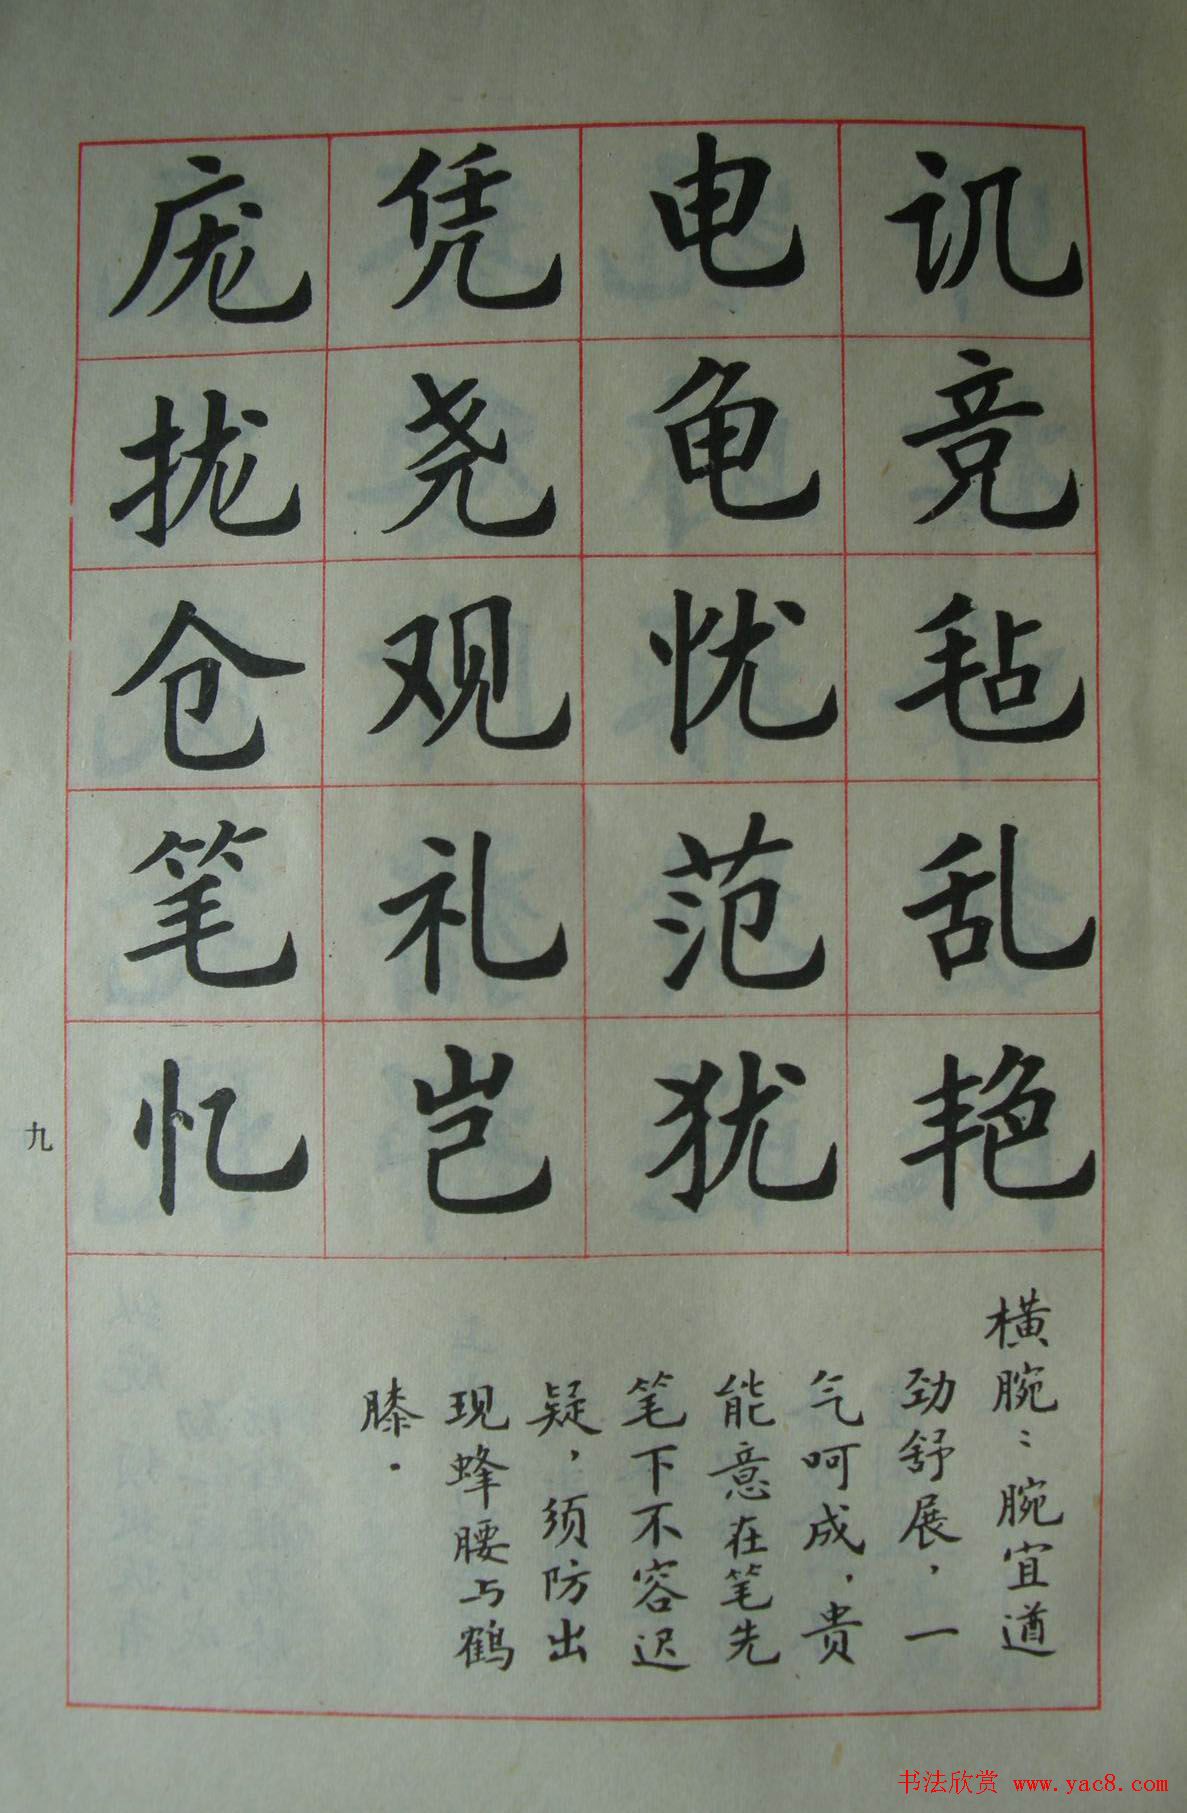 讥竞毡乱艳
电龟忧范犹
凭尧观礼岂
庞拢仓笔忆
横腕：腕宜遒
劲舒展，一
气呵成，贵
能意在笔先
笔下不容迟
疑，须防出
现蜂腰与鹤
膝．
九
书法欣赏 www.yac8.com